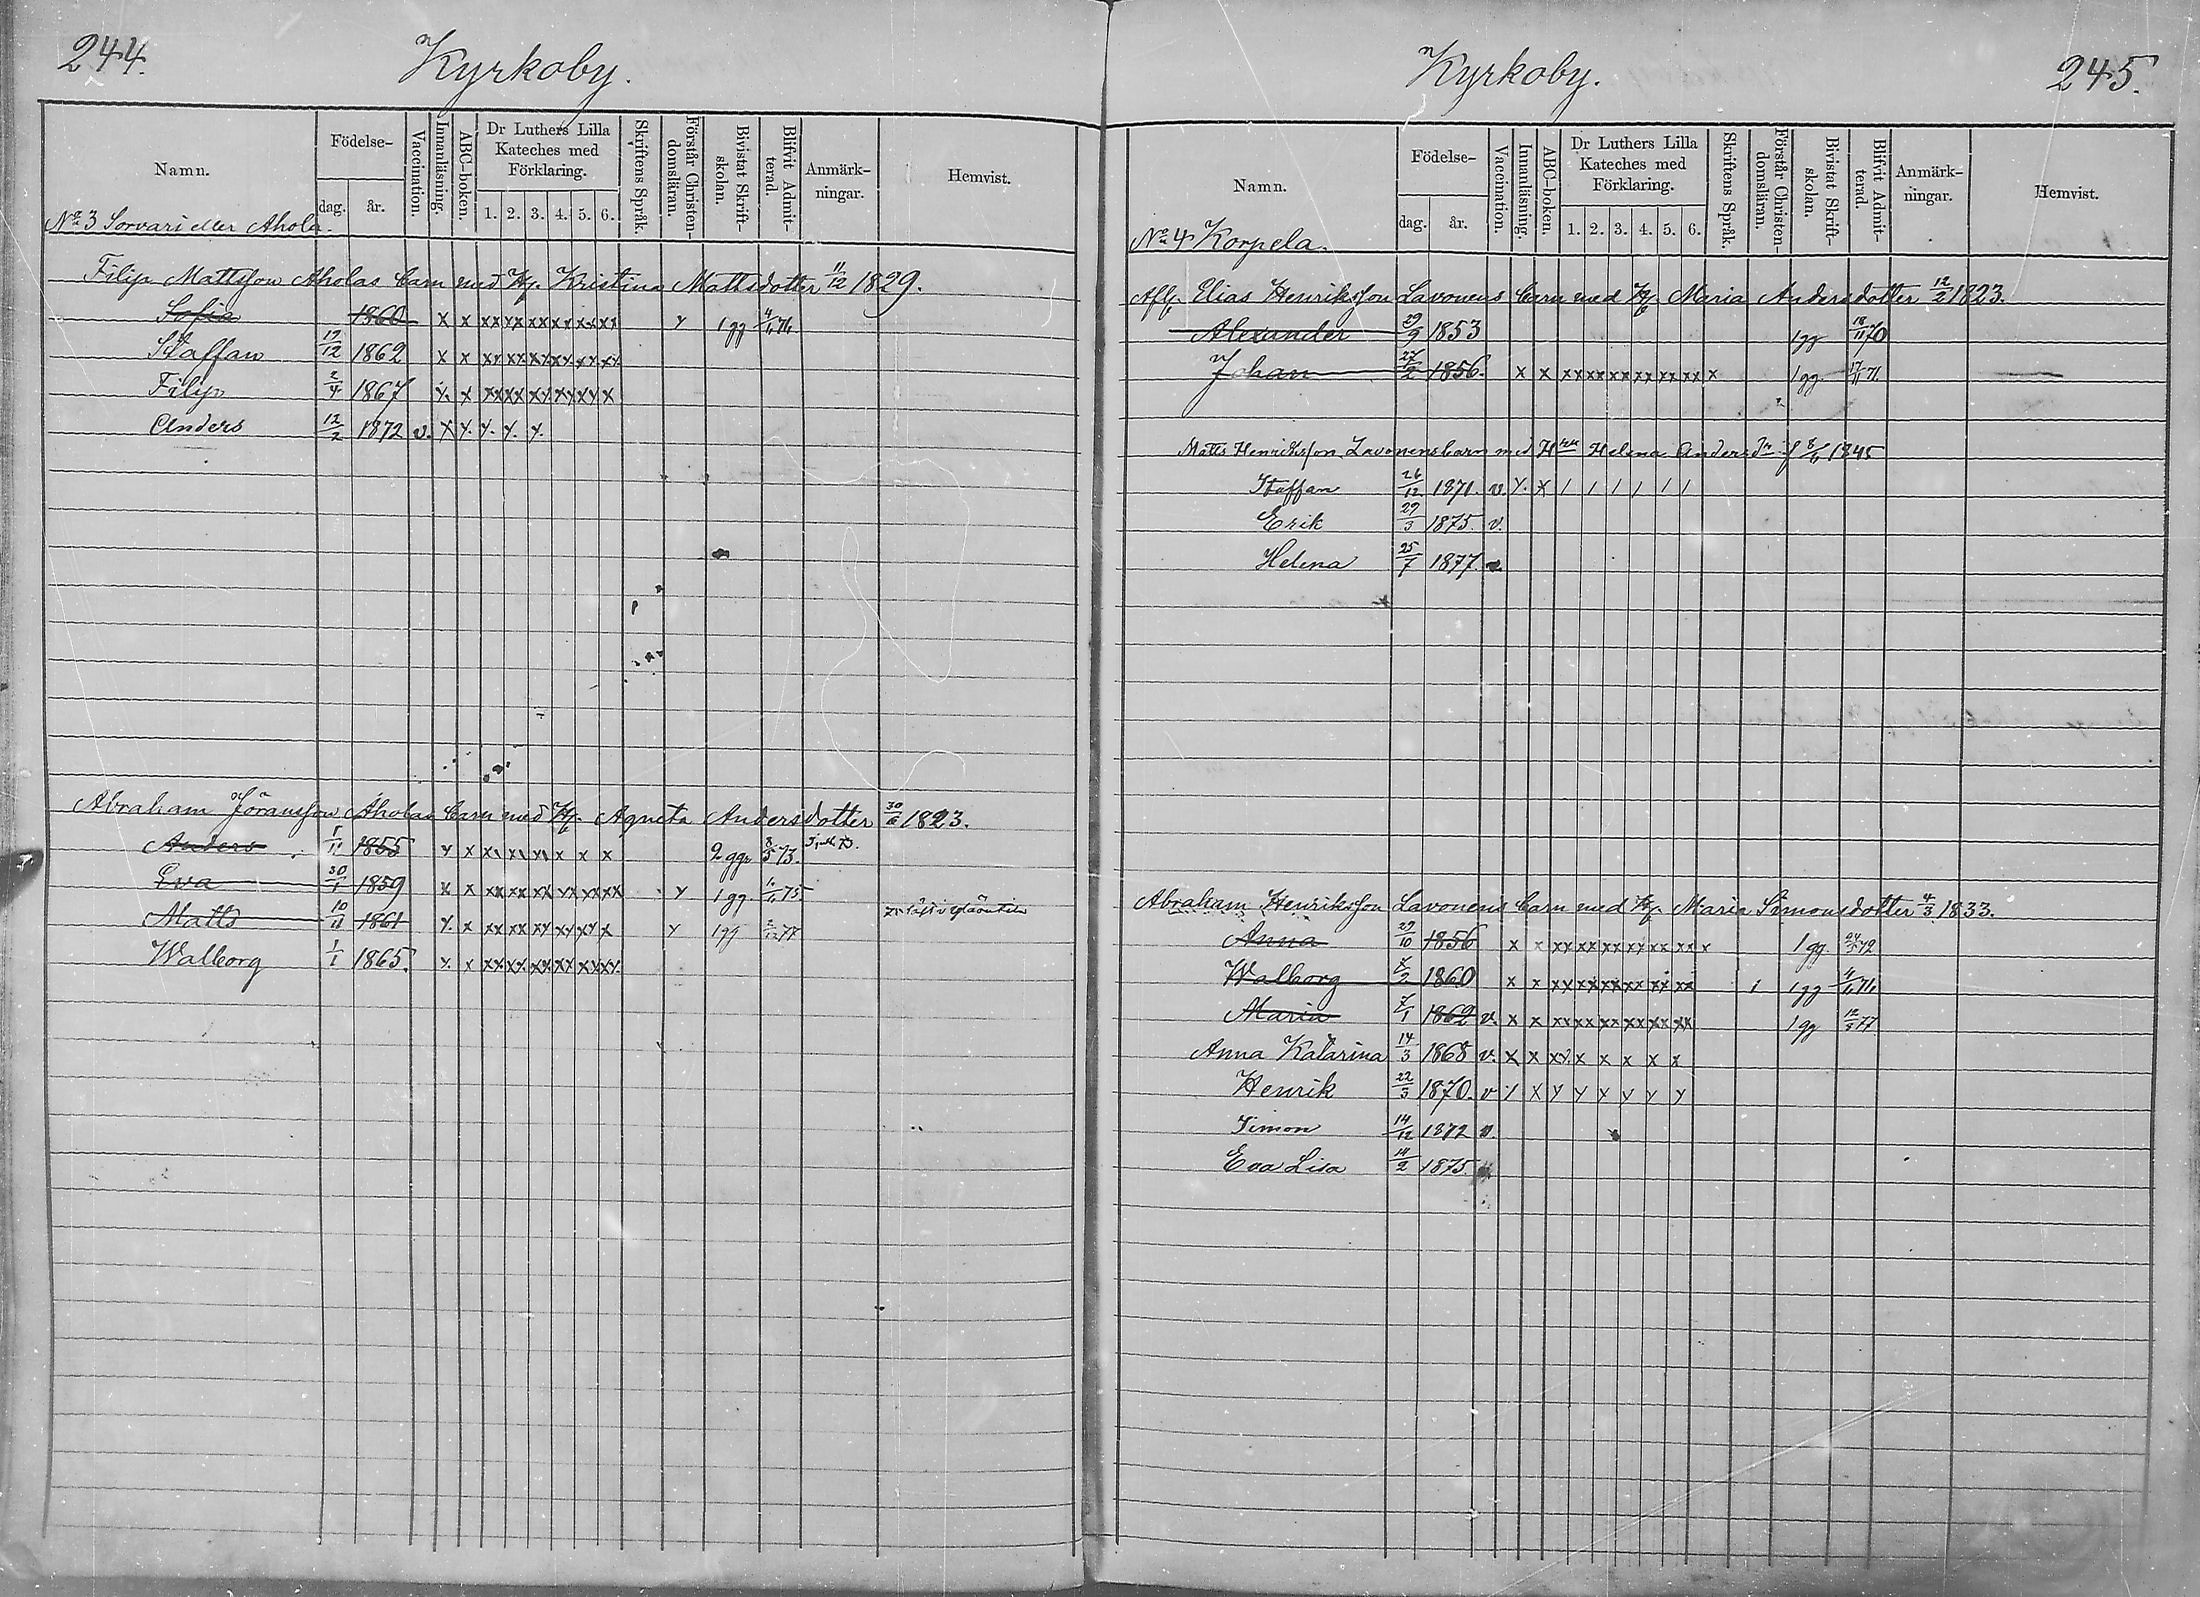 244.
Kyrkoby.
Namn.
Födelse-
dag.
år.
Vaccination.
Innanläsning.
ABC-boken.
Dr Luthers Lilla
Kateches med
Förklaring.
1. 2. 3. 4. 5. 6.
Skriftens Språk.
Förstår Christen-
domsläran.
Bivistat Skrift-
skolan.
Blifvit Admit-
terad.
Anmärk-
ningar.
Hemvist.
No 3 Sorvari eller Ahola.
Filip Mattsson Aholas barn med H. Kristina Mattsdotter 11/12 1829.
Sofia 1860 x x xx xx xx xx xx xx y 1 gg
Staffan 12 1862 x x xx xx xx xx xx xx
Filip 2/4 1867 x. x xx xx xx xx xx x
Anders 12/2 1872 v. x y. y. y. y.
Abraham Göransson Aholas barn med H. Agneta Andersdotter 30/6 1823.
Anders 1855 x x x x x x 2 ggr 8/5 73.
Eva 30/1 1859 x x xx xx xx xx xx xx y 1 gg 75
Matts 10/11 1861 x. x xx xx xx xx xx x y 1 gg 77
Walborg 1/1 1865. x. x xx xx xx xx xx xx
Kyrkoby.
245.
Namn.
Födelse-
dag.
år.
Vaccination.
Innanläsning.
ABC-boken.
Dr Luthers Lilla
Kateches med
Förklaring.
1. 2. 3. 4. 5. 6.
Skriftens Språk.
Förstår Christen-
domsläran.
Bivistat Skrift-
skolan.
Blifvit Admit-
terad.
Anmärk-
ningar.
Hemvist.
No 4 Korpela.
Afl. Elias Henriksson Lavonens barn med H. Maria Andersdotter 12/2 1823.
Alexander 29/9 1853 1 gg 18/11 70
Johan 27/2 1856. x x xx xx xx xx xx xx x 1 gg. 17/11 71.
Matts Henriksson Lavonens barn med Hu Helena Andersdr f 8/6 1845
Staffan 26/12 1871. v. y. x / / / / / /
Erik 29/3 1875. v.
Helena 25/7 1877. v.
Abraham Henriksson Lavonens barn med H. Maria Simonsdotter 4/3 1833.
Anna 29/10 1856 x x xx xx xx xx xx xx x 1 gg. 72
Walborg 7/2 1860 x x xx xx xx xx xx xx 1 gg
Maria 7/1 1862 v. x x xx xx xx xx xx xx 1 gg 77
Anna Katarina 14/3 1868 v. x x xx x x x x x
Henrik 22/3 1870. v / x y y x y y y
Simon 14/12 1872 v.
Eva Lisa 14/2 1875.